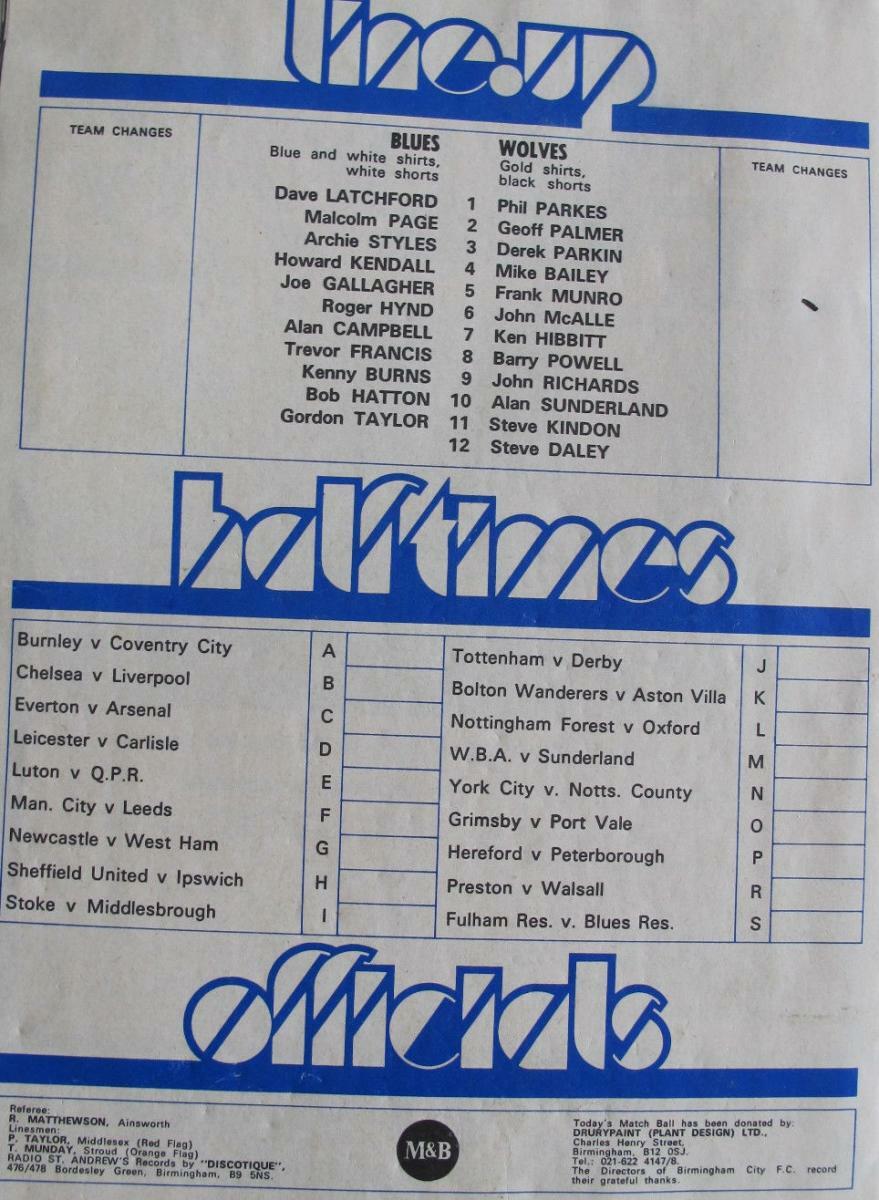 line.up
TEAM CHANGES
BLUES
Blue and white shirts,
white shorts
WOLVES
Gold shirts,
black shorts
TEAM CHANGES
Dave LATCHFORD 1 Phil PARKES
Malcolm PAGE 2 Geoff PALMER
Archie STYLES 3 Derek PARKIN
Howard KENDALL 4 Mike BAILEY
Joe GALLAGHER 5 Frank MUNRO
Roger HYND 6 John McALLE
Alan CAMPBELL 7 Ken HIBBITT
Trevor FRANCIS 8 Barry POWELL
Kenny BURNS 9 John RICHARDS
Bob HATTON 10 Alan SUNDERLAND
Gordon TAYLOR 11 Steve KINDON
12 Steve DALEY
halftimes
Burnley v Coventry City A
Chelsea v Liverpool B
Everton v Arsenal C
Leicester v Carlisle D
Luton v Q.P.R. E
Man. City v Leeds F
Newcastle v West Ham G
Sheffield United v Ipswich H
Stoke v Middlesbrough I
Tottenham v Derby J
Bolton Wanderers v Aston Villa K
Nottingham Forest v Oxford L
W.B.A. v Sunderland M
York City v. Notts. County N
Grimsby v Port Vale O
Hereford v Peterborough P
Preston v Walsall R
Fulham Res. v. Blues Res. S
officials
Referee:
R. MATTHEWSON, Ainsworth
Linesmen:
P. TAYLOR, Middlesex (Red Flag)
T. MUNDAY, Stroud (Orange Flag)
RADIO ST. ANDREW'S Records by "DISCOTIQUE",
476/478 Bordesley Green, Birmingham, B9 5NS.
M&B
Today's Match Ball has been donated by:
DRURYPAINT (PLANT DESIGN) LTD.,
Charles Henry Street,
Birmingham, B12 0SJ.
Tel.: 021-622 4147/8.
The Directors of Birmingham City F.C. record
their grateful thanks.